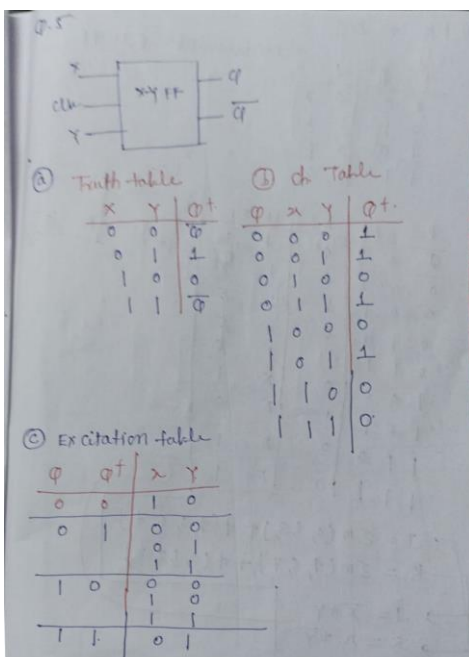 Q.5
X
clk
Y
X-Y FF
Q
Q̅
(a) Truth table
X Y Q+
0 0 Q̅
0 1 1
1 0 0
1 1 Q̅
(b) ch Table
Q x Y Q+.
0 0 0 1
0 0 1 1
0 1 0 0
0 1 1 1
1 0 0 0
1 0 1 1
1 1 0 0
1 1 1 0
(c) Excitation table
Q Q+ x Y
0 0 1 0
0 1 0 0
0 1
1 1
1 0 0 0
1 0
1 1
1 1 0 1